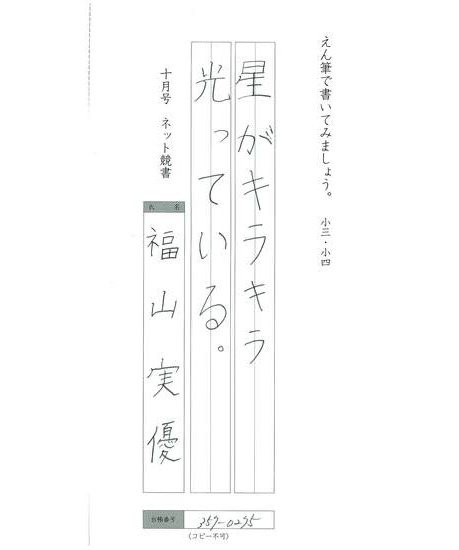 えん筆で書いてみましょう。 小三・小四
星がキラキラ
光っている。
十月号 ネット競書
氏名
福山実優
台帳番号 359-0295
(コピー不可)